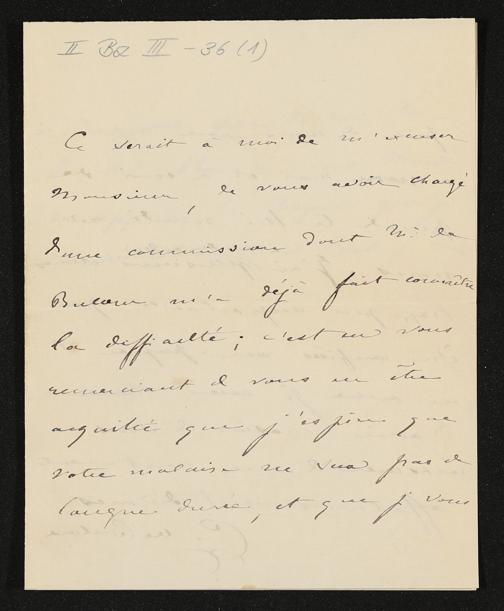 II Bz III - 36 (1)
Ce serait à moi de m'excuser
Monsieur, de vous avoir chargé
d'une commission dont Mr de
m'a déjà fait connaître
la difficulté ; c'est en vous
remerciant de vous en être
acquitté que j'espère que
votre malaise ne sera pas de
longue durée, et que je vous